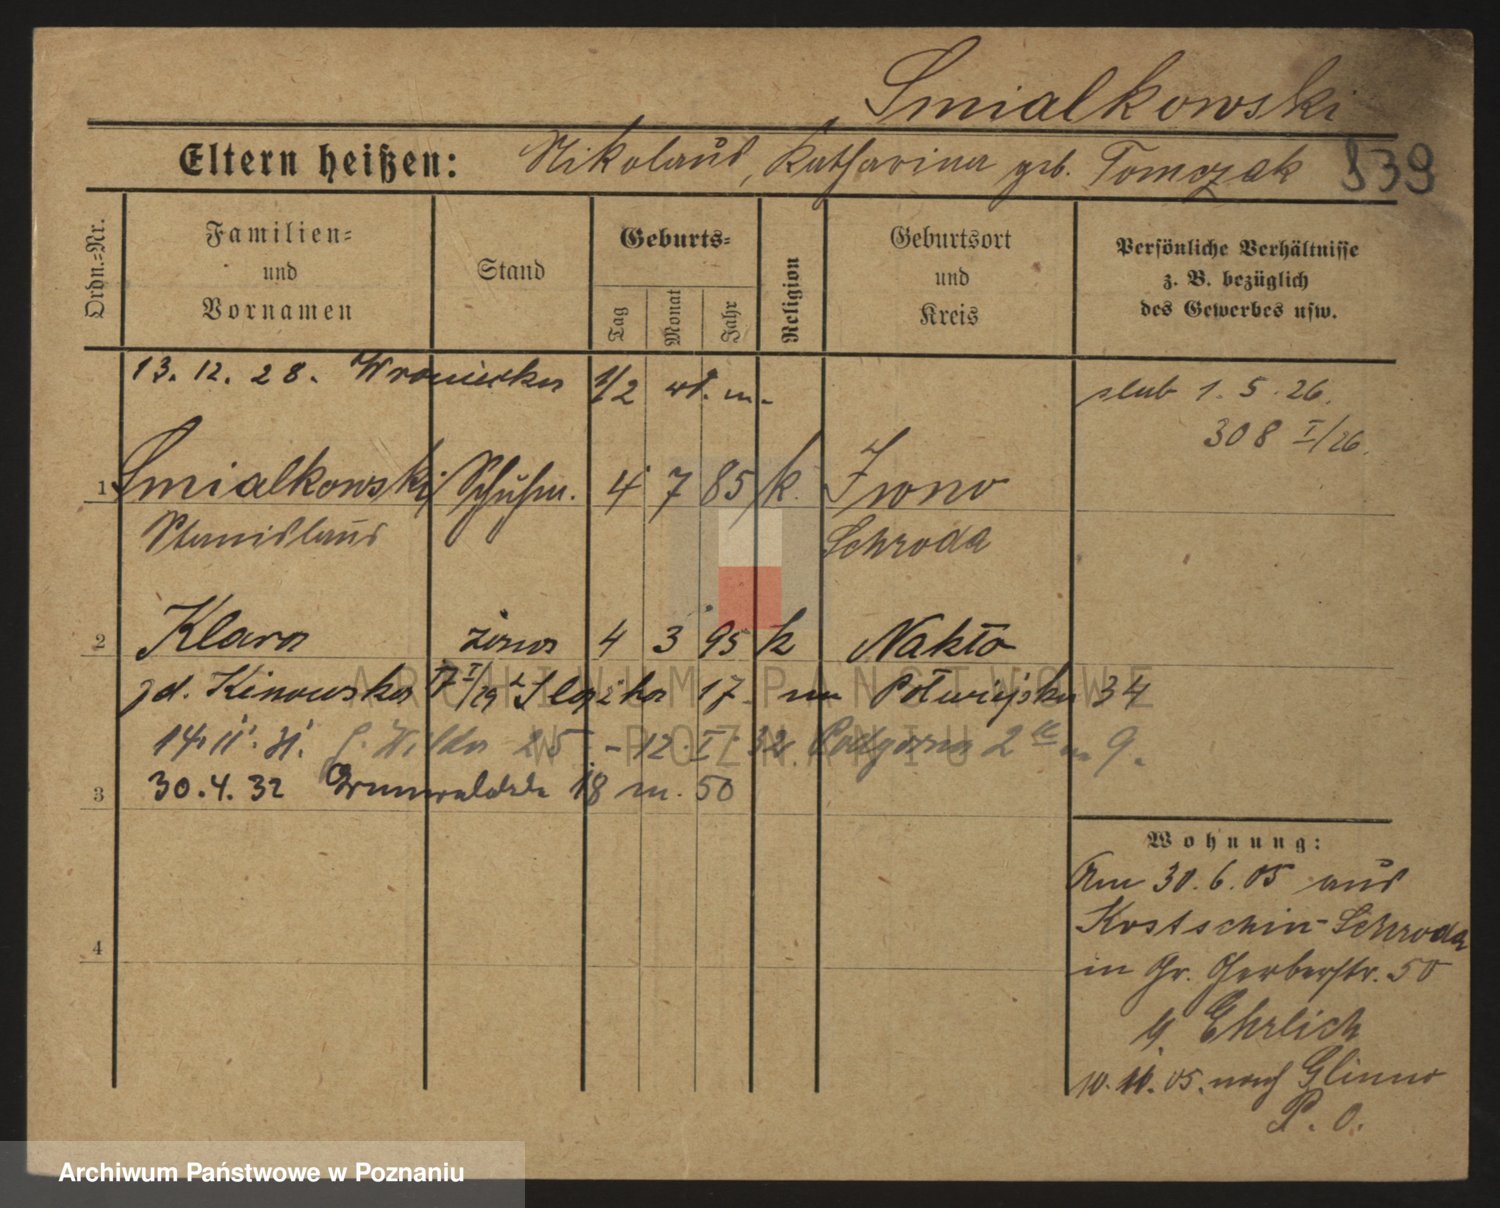 Smialkowski
Eltern heißen: Nikolaus, Katharina geb. Tomczak 839
Ordn.=Nr.
Familien=
und
Vornamen
Stand
Geburts=
Tag
Monat
Jahr
Religion
Geburtsort
und
Kreis
Persönliche Verhältnisse
z. B. bezüglich
des Gewerbes usw.
13. 12. 28. Wroniecka 1/2 wł. m.
ślub 1. 5. 26.
308 I/26.
1 Smialkowski Schuhm. 4 7 85 k. Iwno
Stanislaus Schroda
2 Klara żona 4 3 95 k Nakło
zd. Kinowska I/29 17 m Półwiejska 34
14. 11. 31. G. Wilda 25 - 12. I. 32 Podgórna 2 m 9.
3 30. 4. 32 Grunwaldzka 18 m. 50
Wohnung:
Am 30. 6. 05 aus
Kostschin-Schroda
in Gr. Gerberstr. 50
b. Ehrlich
10. 11. 05. nach Glinno
P. O.
4
ARCHIWUM PAŃSTWOWE
W POZNANIU
Archiwum Państwowe w Poznaniu